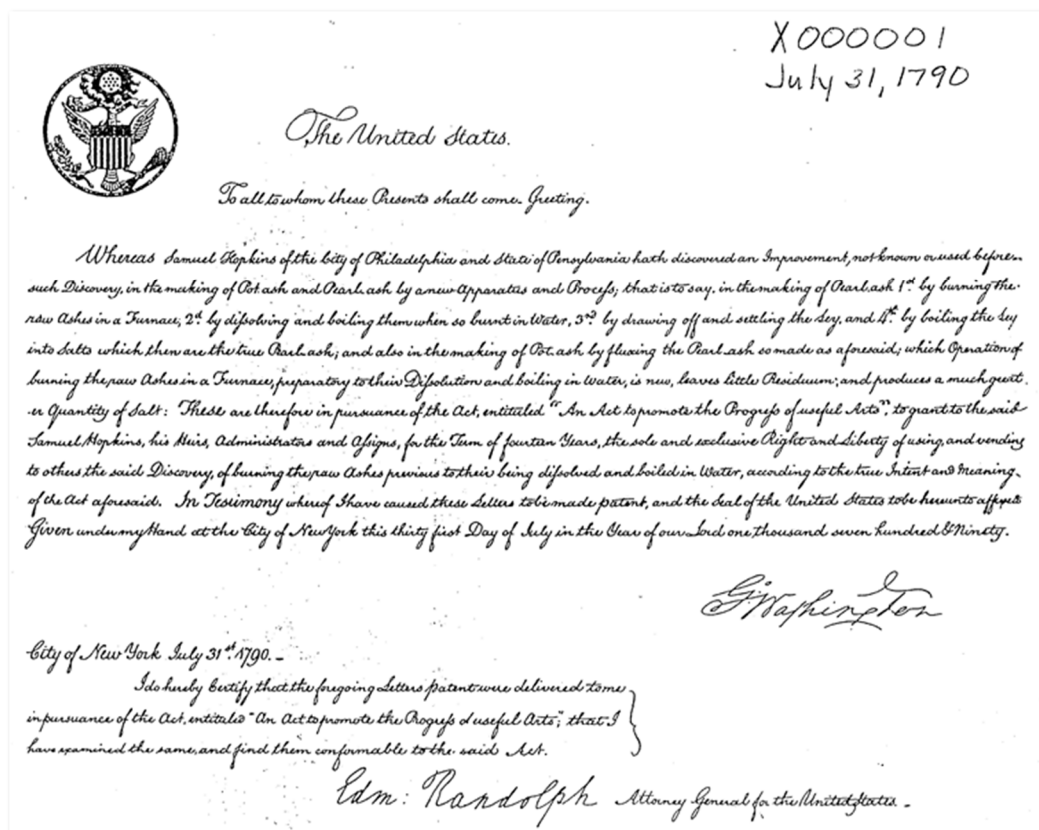 X000001
July 31, 1790
The United States.
To all to whom these Presents shall come Greeting.
Whereas Samuel Hopkins of the City of Philadelphia and State of Pensylvania hath discovered an Improvement, not known or used before
such Discovery, in the making of Pot ash and Pearl ash by a new Apparatus and Process; that is to say, in the making of Pearl ash 1st by burning the
raw Ashes in a Furnace, 2d by dissolving and boiling them when so burnt in Water, 3rd by drawing off and settling the Ley, and 4th by boiling the Ley
into Salts which then are the true Pearl ash; and also in the making of Pot ash by fluxing the Pearl ash so made as aforesaid; which Operation of
burning the raw Ashes in a Furnace, preparatory to their Dissolution and boiling in Water, is new, leaves little Residuum; and produces a much great
er Quantity of Salt: These are therefore in pursuance of the Act, entituled "An Act to promote the Progress of useful Arts", to grant to the said
Samuel Hopkins, his Heirs, Administrators and Assigns, for the Term of fourteen Years, the sole and exclusive Right and Liberty of using, and vending
to others the said Discovery, of burning the raw Ashes previous to their being dissolved and boiled in Water, according to the true Intent and Meaning
of the Act aforesaid. In Testimony whereof I have caused these Letters to be made patent, and the Seal of the United States to be hereunto affixed
Given under my Hand at the City of New York this thirty first Day of July in the Year of our Lord one thousand seven hundred & Ninety.
G. Washington
City of New York July 31st 1790. -
I do hereby Certify that the foregoing Letters patent were delivered to me
in pursuance of the Act, entituled "An Act to promote the Progress of useful Arts"; that I
have examined the same, and find them conformable to the said Act.
Edm: Randolph Attorney General for the United States. -